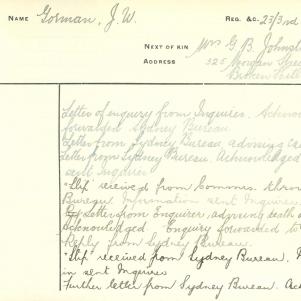 NAME Gorman, J. W. REG. &C. 23/3rd
NEXT OF KIN Mrs G. B. Johnst
ADDRESS 325 Morgan Stre
Broken Hill
Letter of enquiry from Enquirer. Acknow
forwarded Sydney Bureau
Letter from Sydney Bureau, advising ca
Letter from Sydney Bureau. Acknowledged
sent Enquirer
"Slip" received from Comms. thro
Bureau. Information sent Enquirer
Letter from Enquirer, advising death
Acknowledged. Enquiry forwarded to
Reply from Sydney Bureau.
"Slip" received from Sydney Bureau.
in sent Enquirer
Further letter from Sydney Bureau. Ack